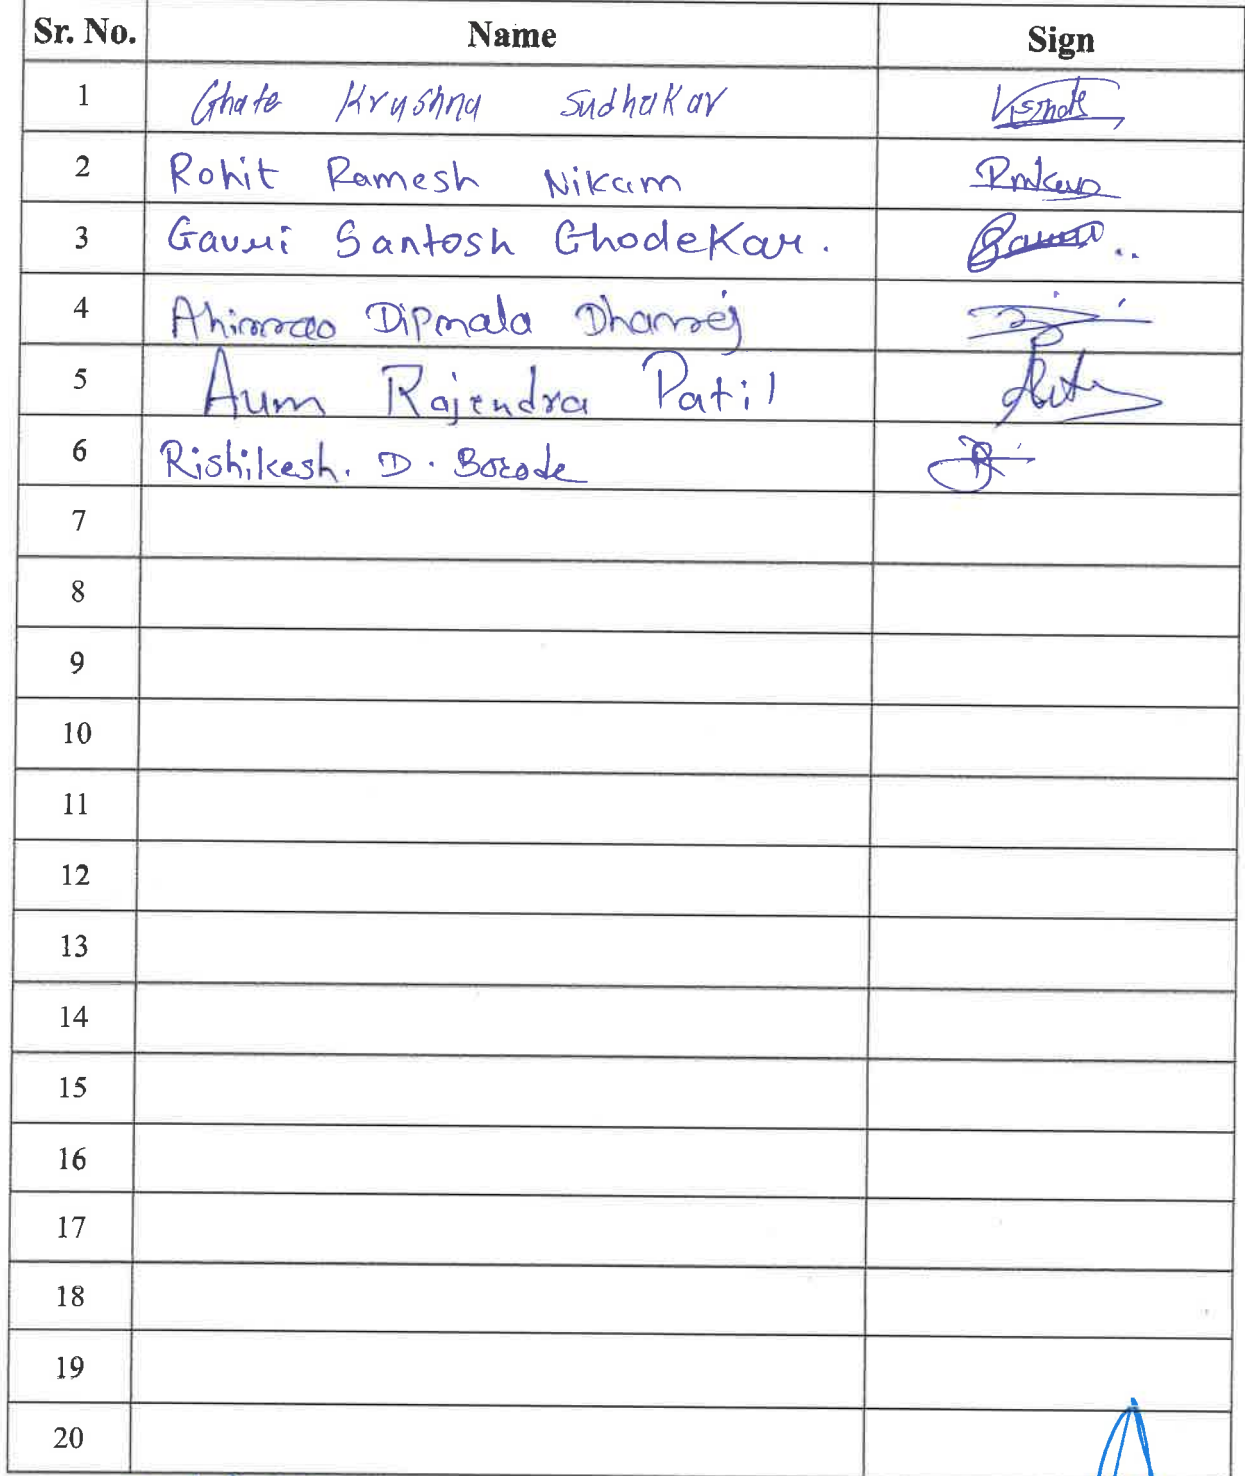 Sr. No. Name Sign
1 Ghate Krushna Sudhakar
2 Rohit Ramesh Nikam
3 Gauri Santosh Ghodekar.
4 Ahirrao Dipmala Dhanraj
5 Aum Rajendra Patil
6 Rishikesh. D. Borode
7
8
9
10
11
12
13
14
15
16
17
18
19
20